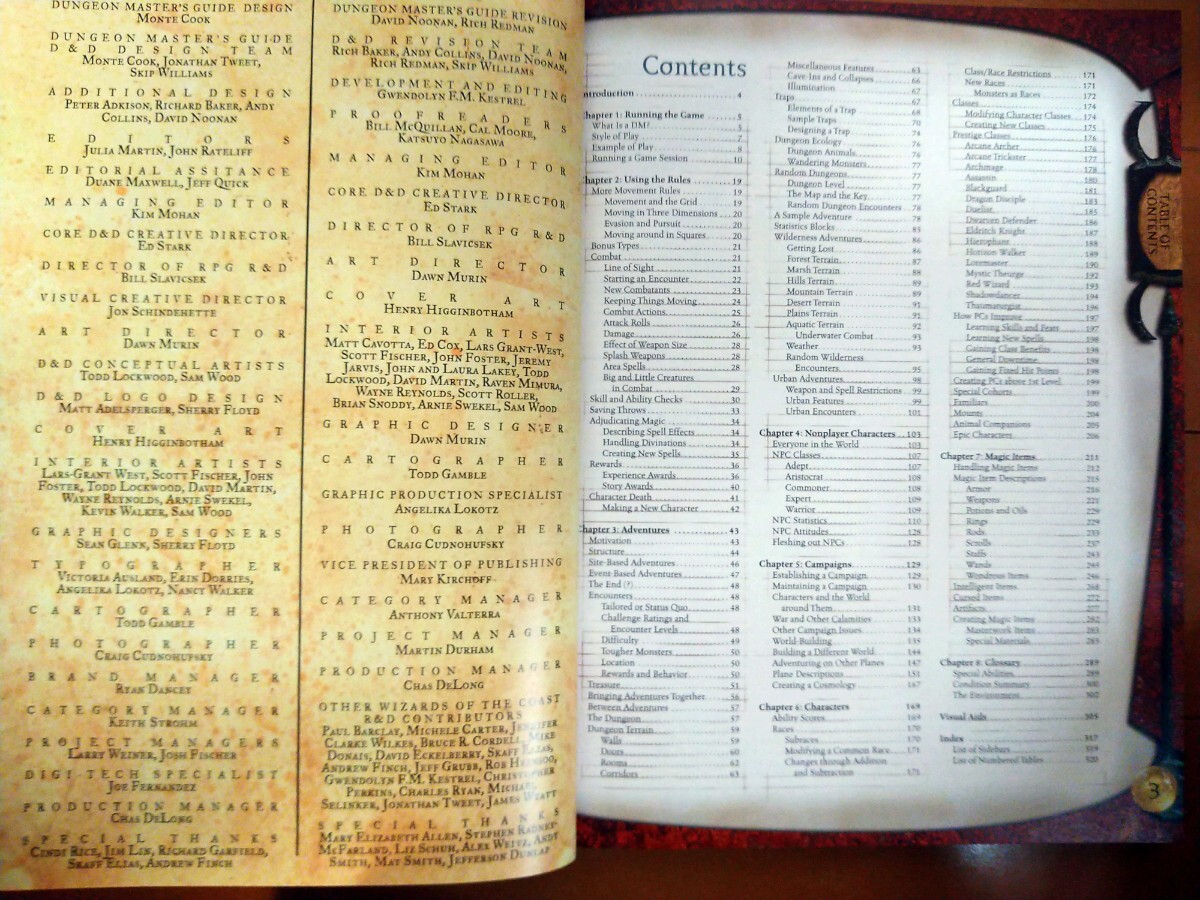 DUNGEON MASTER'S GUIDE DESIGN
MONTE COOK
DUNGEON MASTER'S GUIDE
D&D DESIGN TEAM
MONTE COOK, JONATHAN TWEET,
SKIP WILLIAMS
ADDITIONAL DESIGN
PETER ADKISON, RICHARD BAKER, ANDY
COLLINS, DAVID NOONAN
EDITORS
JULIA MARTIN, JOHN RATELIFF
EDITORIAL ASSITANCE
DUANE MAXWELL, JEFF QUICK
MANAGING EDITOR
KIM MOHAN
CORE D&D CREATIVE DIRECTOR
ED STARK
DIRECTOR OF RPG R&D
BILL SLAVICSEK
VISUAL CREATIVE DIRECTOR
JON SCHINDEHETTE
ART DIRECTOR
DAWN MURIN
D&D CONCEPTUAL ARTISTS
TODD LOCKWOOD, SAM WOOD
D&D LOGO DESIGN
MATT ADELSPERGER, SHERRY FLOYD
COVER ART
HENRY HIGGINBOTHAM
INTERIOR ARTISTS
LARS-GRANT WEST, SCOTT FISCHER, JOHN
FOSTER, TODD LOCKWOOD, DAVID MARTIN,
WAYNE REYNOLDS, ARNIE SWEKEL,
KEVIN WALKER, SAM WOOD
GRAPHIC DESIGNERS
SEAN GLENN, SHERRY FLOYD
TYPOGRAPHER
VICTORIA AUSLAND, ERIN DORRIES,
ANGELIKA LOKOTZ, NANCY WALKER
CARTOGRAPHER
TODD GAMBLE
PHOTOGRAPHER
CRAIG CUDNOHUFSKY
BRAND MANAGER
RYAN DANCEY
CATEGORY MANAGER
KEITH STROHM
PROJECT MANAGERS
LARRY WEINER, JOSH FISCHER
DIGI-TECH SPECIALIST
JOE FERNANDEZ
PRODUCTION MANAGER
CHAS DELONG
SPECIAL THANKS
CINDI RICE, JIM LIN, RICHARD GARFIELD,
SKAFF ELIAS, ANDREW FINCH
DUNGEON MASTER'S GUIDE REVISION
DAVID NOONAN, RICH REDMAN
D&D REVISION TEAM
RICH BAKER, ANDY COLLINS, DAVID NOONAN,
RICH REDMAN, SKIP WILLIAMS
DEVELOPMENT AND EDITING
GWENDOLYN F.M. KESTREL
PROOFREADERS
BILL MCQUILLAN, CAL MOORE,
KATSUYO NAGASAWA
MANAGING EDITOR
KIM MOHAN
CORE D&D CREATIVE DIRECTOR
ED STARK
DIRECTOR OF RPG R&D
BILL SLAVICSEK
ART DIRECTOR
DAWN MURIN
COVER ART
HENRY HIGGINBOTHAM
INTERIOR ARTISTS
MATT CAVOTTA, ED COX, LARS GRANT-WEST,
SCOTT FISCHER, JOHN FOSTER, JEREMY
JARVIS, JOHN AND LAURA LAKEY, TODD
LOCKWOOD, DAVID MARTIN, RAVEN MIMURA,
WAYNE REYNOLDS, SCOTT ROLLER,
BRIAN SNODDY, ARNIE SWEKEL, SAM WOOD
GRAPHIC DESIGNER
DAWN MURIN
CARTOGRAPHER
TODD GAMBLE
GRAPHIC PRODUCTION SPECIALIST
ANGELIKA LOKOTZ
PHOTOGRAPHER
CRAIG CUDNOHUFSKY
VICE PRESIDENT OF PUBLISHING
MARY KIRCHOFF
CATEGORY MANAGER
ANTHONY VALTERRA
PROJECT MANAGER
MARTIN DURHAM
PRODUCTION MANAGER
CHAS DELONG
OTHER WIZARDS OF THE COAST
R&D CONTRIBUTORS
PAUL BARCLAY, MICHELE CARTER, JENNIFER
CLARKE WILKES, BRUCE R. CORDELL, MIKE
DONAIS, DAVID ECKELBERRY, SKAFF ELIAS,
ANDREW FINCH, JEFF GRUBB, ROB HEINSOO,
GWENDOLYN F.M. KESTREL, CHRISTOPHER
PERKINS, CHARLES RYAN, MICHAEL
SELINKER, JONATHAN TWEET, JAMES WYATT
SPECIAL THANKS
MARY ELIZABETH ALLEN, STEPHEN RADNEY-
MCFARLAND, LIZ SCHUH, ALEX WEITZ, ANDY
SMITH, MAT SMITH, JEFFERSON DUNLAP
Contents
Introduction 4
Chapter 1: Running the Game 5
What Is a DM? 5
Style of Play 7
Example of Play 8
Running a Game Session 10
Chapter 2: Using the Rules 19
More Movement Rules 19
Movement and the Grid 19
Moving in Three Dimensions 20
Evasion and Pursuit 20
Moving around in Squares 20
Bonus Types 21
Combat 21
Line of Sight 21
Starting an Encounter 22
New Combatants 23
Keeping Things Moving 24
Combat Actions 25
Attack Rolls 26
Damage 26
Effect of Weapon Size 28
Splash Weapons 28
Area Spells 28
Big and Little Creatures
in Combat 29
Skill and Ability Checks 30
Saving Throws 33
Adjudicating Magic 34
Describing Spell Effects 34
Handling Divinations 34
Creating New Spells 35
Rewards 36
Experience Awards 36
Story Awards 40
Character Death 41
Making a New Character 42
Chapter 3: Adventures 43
Motivation 43
Structure 44
Site-Based Adventures 46
Event-Based Adventures 47
The End (?) 48
Encounters 48
Tailored or Status Quo 48
Challenge Ratings and
Encounter Levels 48
Difficulty 49
Tougher Monsters 50
Location 50
Rewards and Behavior 50
Treasure 51
Bringing Adventures Together 56
Between Adventures 57
The Dungeon 57
Dungeon Terrain 59
Walls 59
Doors 60
Rooms 62
Corridors 63
Miscellaneous Features 63
Cave-Ins and Collapses 66
Illumination 67
Traps 67
Elements of a Trap 68
Sample Traps 70
Designing a Trap 74
Dungeon Ecology 76
Dungeon Animals 76
Wandering Monsters 77
Random Dungeons 77
Dungeon Level 77
The Map and the Key 77
Random Dungeon Encounters 78
A Sample Adventure 78
Statistics Blocks 85
Wilderness Adventures 86
Getting Lost 86
Forest Terrain 87
Marsh Terrain 88
Hills Terrain 89
Mountain Terrain 89
Desert Terrain 91
Plains Terrain 91
Aquatic Terrain 92
Underwater Combat 93
Weather 93
Random Wilderness
Encounters 95
Urban Adventures 98
Weapon and Spell Restrictions 99
Urban Features 99
Urban Encounters 101
Chapter 4: Nonplayer Characters 103
Everyone in the World 103
NPC Classes 107
Adept 107
Aristocrat 108
Commoner 108
Expert 109
Warrior 109
NPC Statistics 110
NPC Attitudes 128
Fleshing out NPCs 128
Chapter 5: Campaigns 129
Establishing a Campaign 129
Maintaining a Campaign 130
Characters and the World
around Them 131
War and Other Calamities 133
Other Campaign Issues 134
World-Building 135
Building a Different World 144
Adventuring on Other Planes 147
Plane Descriptions 151
Creating a Cosmology 167
Chapter 6: Characters 169
Ability Scores 169
Races 170
Subraces 170
Modifying a Common Race 171
Changes through Addition
and Subtraction 171
Class/Race Restrictions 171
New Races 171
Monsters as Races 172
Classes 174
Modifying Character Classes 174
Creating New Classes 175
Prestige Classes 176
Arcane Archer 176
Arcane Trickster 177
Archmage 178
Assassin 180
Blackguard 181
Dragon Disciple 183
Duelist 185
Dwarven Defender 186
Eldritch Knight 187
Hierophant 188
Horizon Walker 189
Loremaster 190
Mystic Theurge 192
Red Wizard 193
Shadowdancer 194
Thaumaturgist 196
How PCs Improve 197
Learning Skills and Feats 197
Learning New Spells 198
Gaining Class Benefits 198
General Downtime 198
Gaining Fixed Hit Points 198
Creating PCs above 1st Level 199
Special Cohorts 199
Familiars 200
Mounts 204
Animal Companions 205
Epic Characters 206
Chapter 7: Magic Items 211
Handling Magic Items 212
Magic Item Descriptions 215
Armor 216
Weapons 221
Potions and Oils 229
Rings 229
Rods 233
Scrolls 237
Staffs 243
Wands 245
Wondrous Items 246
Intelligent Items 268
Cursed Items 272
Artifacts 277
Creating Magic Items 282
Masterwork Items 283
Special Materials 283
Chapter 8: Glossary 289
Special Abilities 289
Condition Summary 300
The Environment 302
Visual Aids 305
Index 317
List of Sidebars 319
List of Numbered Tables 320
TABLE OF
CONTENTS
3